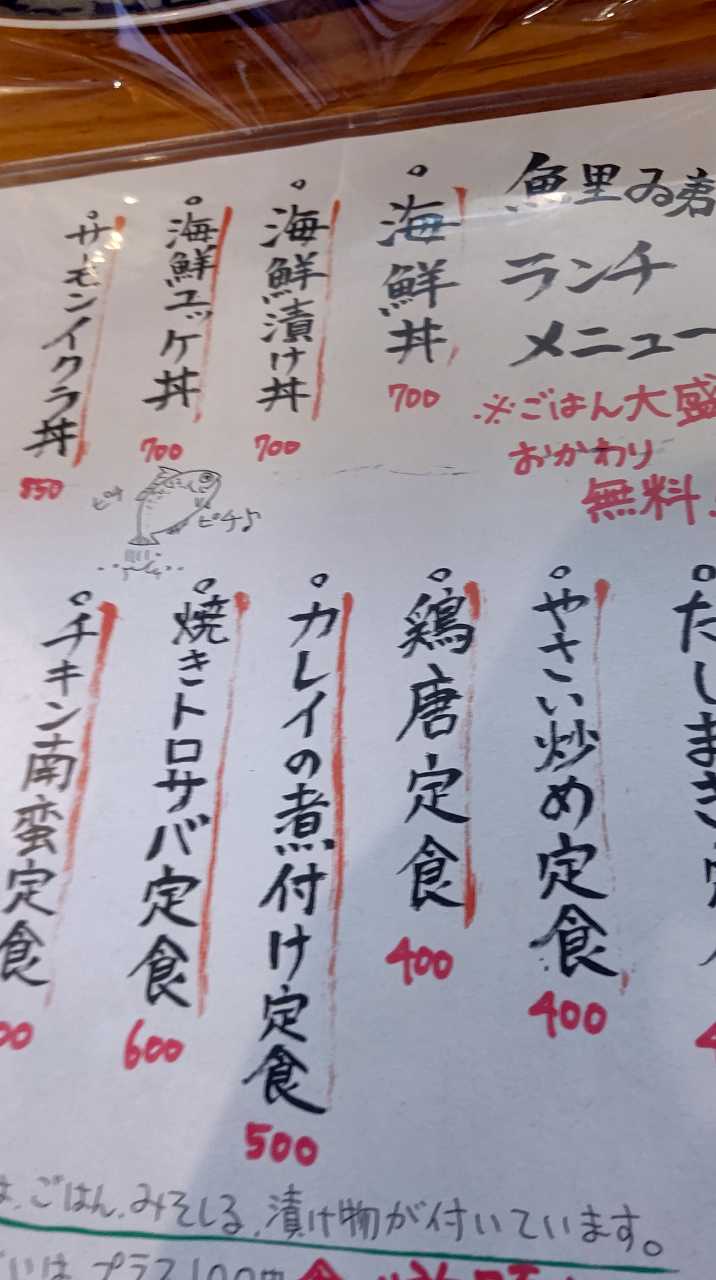 魚里ゐ寿
ランチ
メニュー
※ごはん大盛
おかわり
無料
海鮮丼
700
海鮮漬け丼
700
海鮮ユッケ丼
700
サーモンイクラ丼
850
ピチ
ピチ♪
だしまき定
4
やさい炒め定食
400
鶏唐定食
400
カレイの煮付け定食
500
焼きトロサバ定食
600
チキン南蛮定食
00
は、ごはん、みそしる、漁け物が付いています。
プラス100円